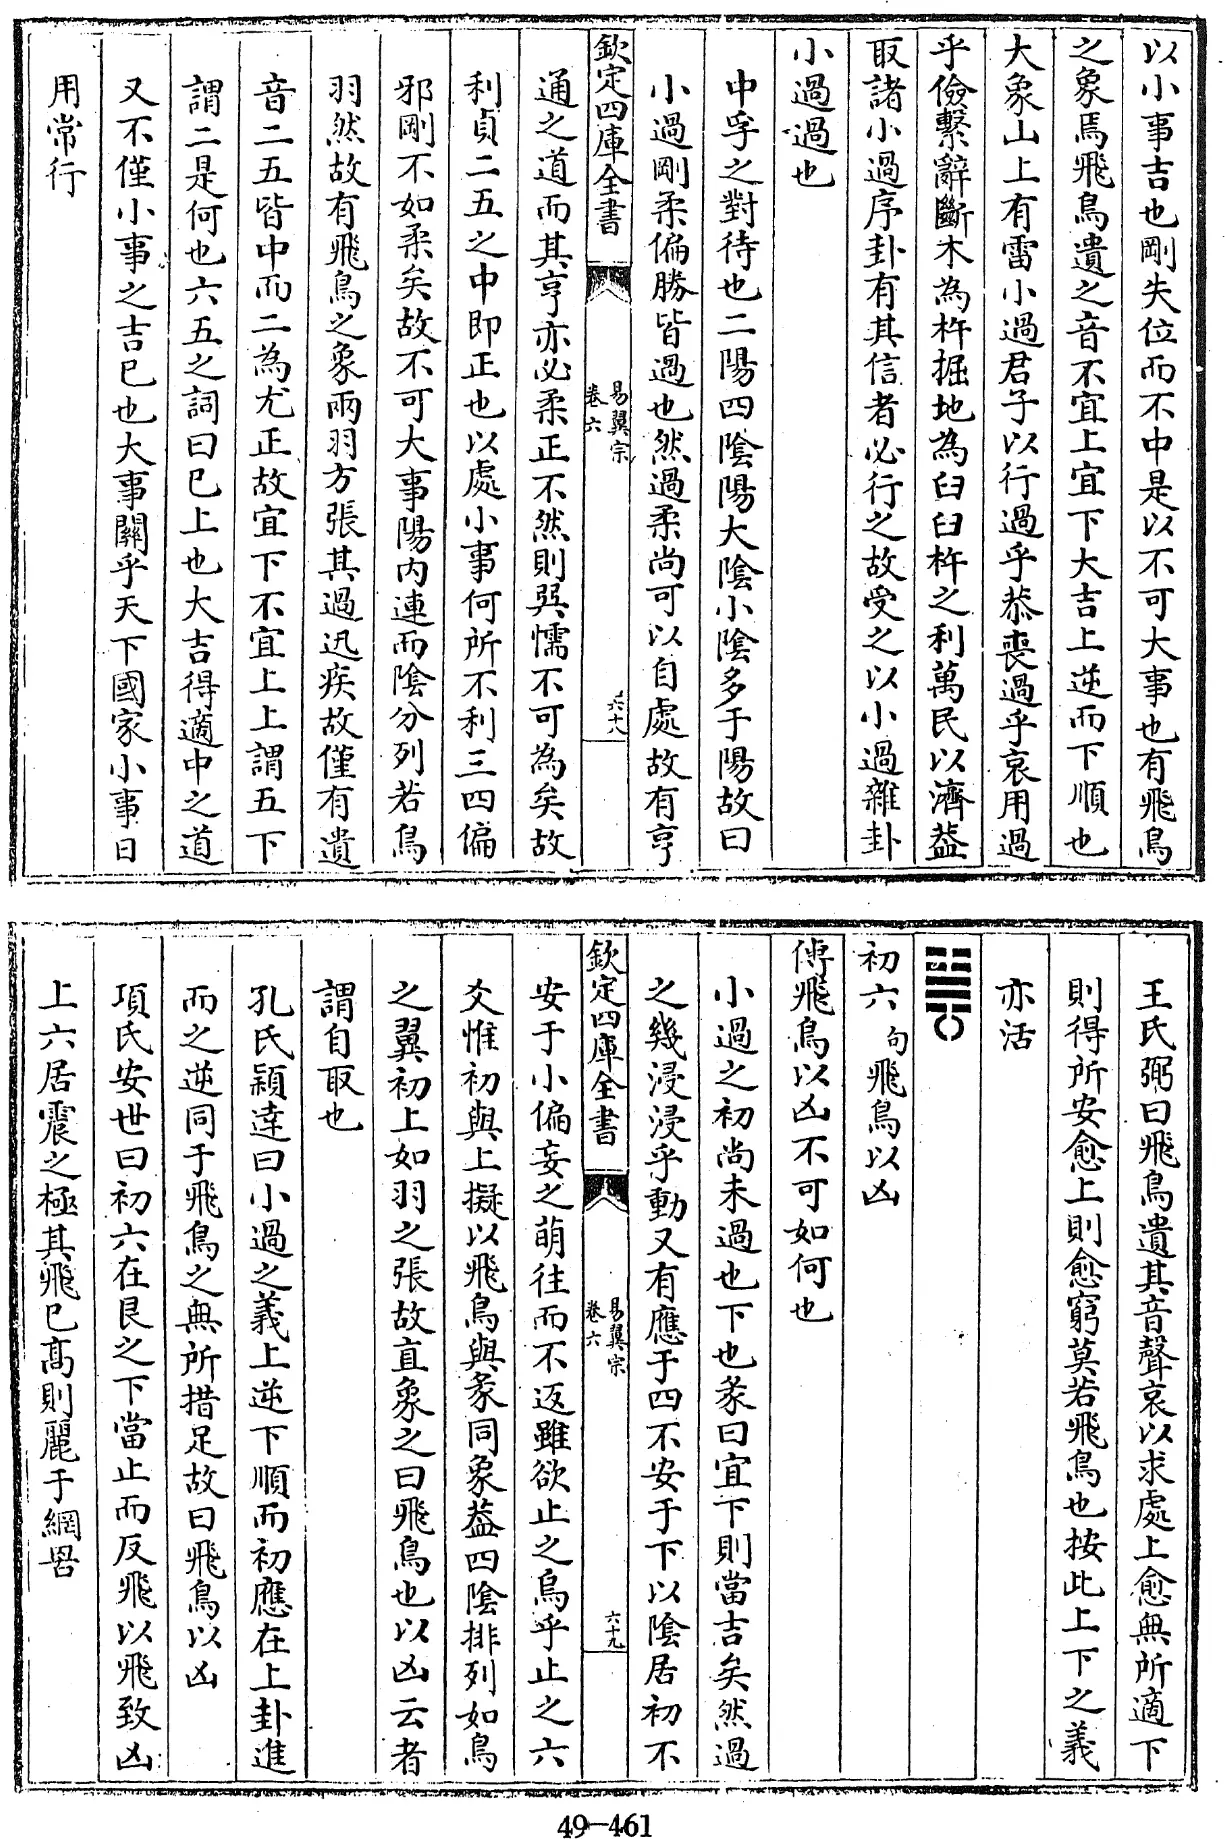 以小事吉也剛失位而不中是以不可大事也有飛鳥
之象焉飛鳥遺之音不宜上宜下大吉上逆而下順也
大象山上有雷小過君子以行過乎恭喪過乎哀用過
乎儉繫辭斷木為杵掘地為臼臼杵之利萬民以濟葢
取諸小過序卦有其信者必行之故受之以小過雜卦
小過過也
中孚之對待也二陽四陰陽大陰小陰多于陽故曰
小過剛柔偏勝皆過也然過柔尚可以自處故有亨
欽定四庫全書
易翼宗
卷六
六十八
通之道而其亨亦必柔正不然則巽懦不可為矣故
利貞二五之中即正也以處小事何所不利三四偏
邪剛不如柔矣故不可大事陽内連而陰分列若鳥
羽然故有飛鳥之象兩羽方張其過迅疾故僅有遺
音二五皆中而二為尤正故宜下不宜上上謂五下
謂二是何也六五之詞曰已上也大吉得適中之道
又不僅小事之吉已也大事關乎天下國家小事日
用常行
王氏弼曰飛鳥遺其音聲哀以求處上愈無所適下
則得所安愈上則愈窮莫若飛鳥也按此上下之義
亦活
初六句飛鳥以凶
傳飛鳥以凶不可如何也
小過之初尚未過也下也彖曰宜下則當吉矣然過
之幾浸浸乎動又有應于四不安于下以陰居初不
欽定四庫全書
易翼宗
卷六
六十九
安于小偏妄之萌往而不返雖欲止之烏乎止之六
爻惟初與上擬以飛鳥與彖同象葢四陰排列如鳥
之翼初上如羽之張故直象之曰飛鳥也以凶云者
謂自取也
孔氏穎達曰小過之義上逆下順而初應在上卦進
而之逆同于飛鳥之無所措足故曰飛鳥以凶
項氏安世曰初六在艮之下當止而反飛以飛致凶
上六居震之極其飛已高則麗于網罟
49-461